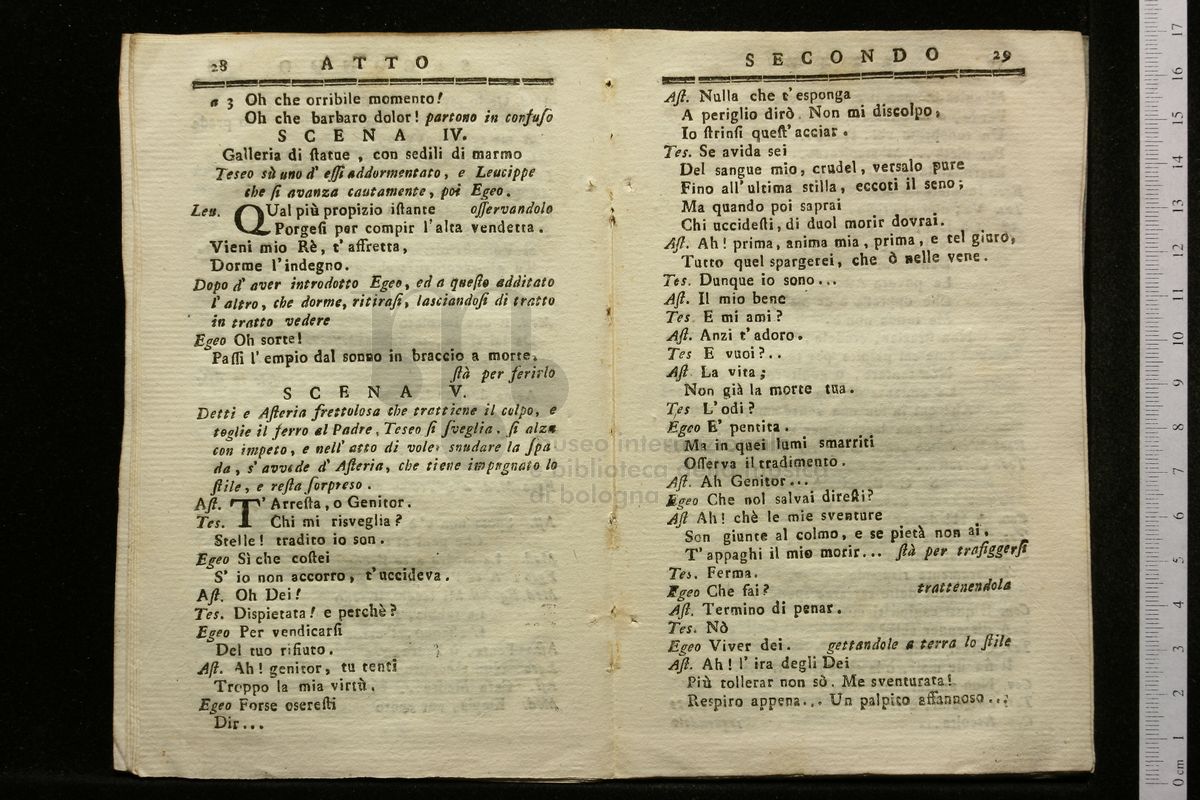 28 ATTO
a 3 Oh che orribile momento!
Oh che barbaro dolor! partono in confuſo
SCENA IV.
Galleria di ſtatue , con sedili di marmo
Teseo sù uno d' eſſi addormentato, e Leucippe
che ſi avanza cautamente, poi Egeo.
Leu. QUal più propizio iſtante oſſervandolo
Porgeſi per compir l'alta vendetta .
Vieni mio Rè, t' affretta,
Dorme l'indegno.
Dopo d' aver introdotto Egeo, ed a queſto additato
l' altro, che dorme, ritiraſi, lasciandoſi di tratto
in tratto vedere
Egeo Oh sorte!
Paſſi l' empio dal sonno in braccio a morte.
ſtà per ferirlo
SCENA V.
Detti e Aſteria frettolosa che trattiene il colpo, e
toglie il ferro al Padre. Teseo ſi ſveglia. ſi alza
con impeto, e nell' atto di voler snudare la ſpa
da, s' avvede d' Aſteria, che tiene impugnato lo
ſtile, e reſta ſorpreso .
Aſt. T' Arreſta, o Genitor.
Tes. Chi mi risveglia?
Stelle! tradito io son.
Egeo Sì che coſtei
S' io non accorro, t'uccideva.
Aſt. Oh Dei!
Tes. Dispietata! e perchè?
Egeo Per vendicarſi
Del tuo rifiuto.
Aſt. Ah! genitor, tu tenti
Troppo la mia virtù.
Egeo Forse osereſti
Dir...
SECONDO 29
Aſt. Nulla che t'esponga
A periglio dirò. Non mi discolpo,
Io ſtrinſi queſt' acciar.
Tes. Se avida sei
Del sangue mio, crudel, versalo pure
Fino all' ultima stilla, eccoti il seno;
Ma quando poi saprai
Chi uccideſti, di duol morir dovrai.
Aſt. Ah! prima, anima mia, prima, e tel giuro,
Tutto quel spargerei, che ò nelle vene.
Tes. Dunque io sono...
Aſt. Il mio bene
Tes. E mi ami?
Aſt. Anzi t' adoro.
Tes E vuoi?..
Aſt La vita;
Non già la morte tua.
Tes L' odi?
Egeo E' pentita.
Ma in quei lumi smarriti
Oſſerva il tradimento.
Aſt. Ah Genitor...
Egeo Che nol salvai direſti?
Aſt Ah! chè le mie sventure
Son giunte al colmo, e se pietà non ai,
T' appaghi il mio morir... ſtà per trafiggerſi
Tes. Ferma.
Egeo Che fai? trattenendola
Aſt. Termino di penar.
Tes. Nò
Egeo Viver dei. gettandole a terra lo ſtile
Aſt. Ah! l' ira degli Dei
Più tollerar non sò. Me sventurata!
Respiro appena... Un palpito affannoso...
museo internazionale
e biblioteca della musica
di bologna
17
16
15
14
13
12
11
10
9
8
7
6
5
4
3
2
1
0 cm